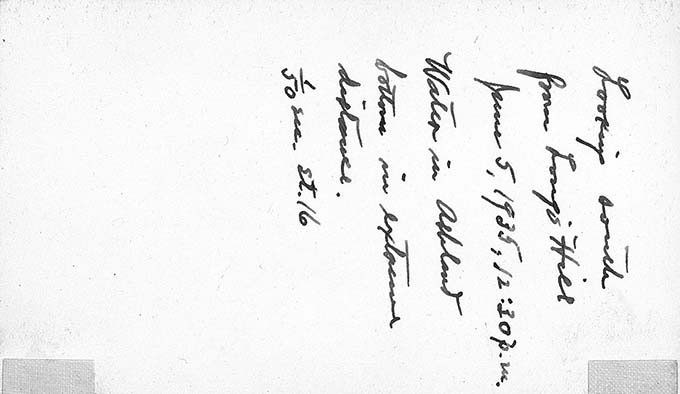 Looking south
from Long's Hill
June 5, 1935, 12:30 p.m.
Water in Ashland
bottom in extreme
distance.
1/50 sec. st. 16